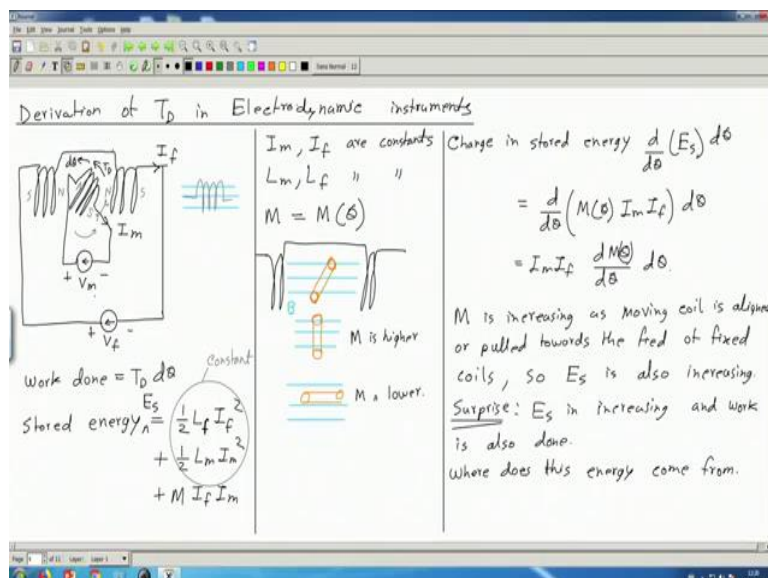 Journal
File Edit View Journal Tools Options Help
Sans Normal 12
Derivation of T_D in Electrodynamic instruments
I_f
dθ
T_D
S
N
N
S
S
I_m
+ V_m -
+ V_f -
Work done = T_D dθ
Constant
Stored energy E_s = 1/2 L_f I_f^2
+ 1/2 L_m I_m^2
+ M I_f I_m
I_m, I_f are constants
L_m, L_f " "
M = M(θ)
B
M is higher
M is lower.
Change in stored energy d/dθ (E_s) dθ
= d/dθ (M(θ) I_m I_f) dθ
= I_m I_f dM(θ)/dθ dθ.
M is increasing as moving coil is aligned
or pulled towards the fied of fixed
coils, so E_s is also increasing.
Surprise: E_s in increasing and work
is also done.
Where does this energy come from.
Page of 11 Layer: Layer 1